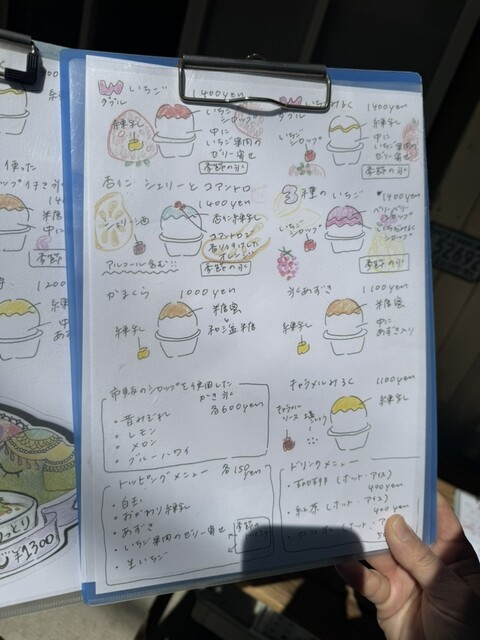 Wいちご 1400yen
ダブル
練乳
いちご
シロップ
中に
いちご果肉の
ゼリー寄せ
季節の氷
Wいちごみるく 1400yen
ダブル
いちご
シロップ
練乳
中に
いちご果肉の
ゼリー寄せ
季節の氷
杏仁 シェリーとコアントロ
1400yen
シェリー酒
杏仁練乳
コアントロで
香りづけした
オレンジ
アルコール含む
季節の氷
3種のいちご 1400yen
いちご
シロップ
シロップ
季節の氷
かまくら 1000yen
練乳
糖蜜
和三盆糖
氷あずき 1100yen
練乳
糖蜜
中に
あずき入り
市販のシロップを使用した
かき氷
各600yen
・昔みぞれ
・レモン
・メロン
・ブルーハワイ
キャラメルみるく 1100yen
キャラメル
ソース
練乳
トッピングメニュー 各150yen
・白玉
・おかわり練乳
・あずき
・いちご果肉のゼリー寄せ
・生いちご
ドリンクメニュー
・珈琲 (ホット・アイス)
400yen
・紅茶 (ホット・アイス)
400yen
使った
1200
練乳
中
あず
¥1300